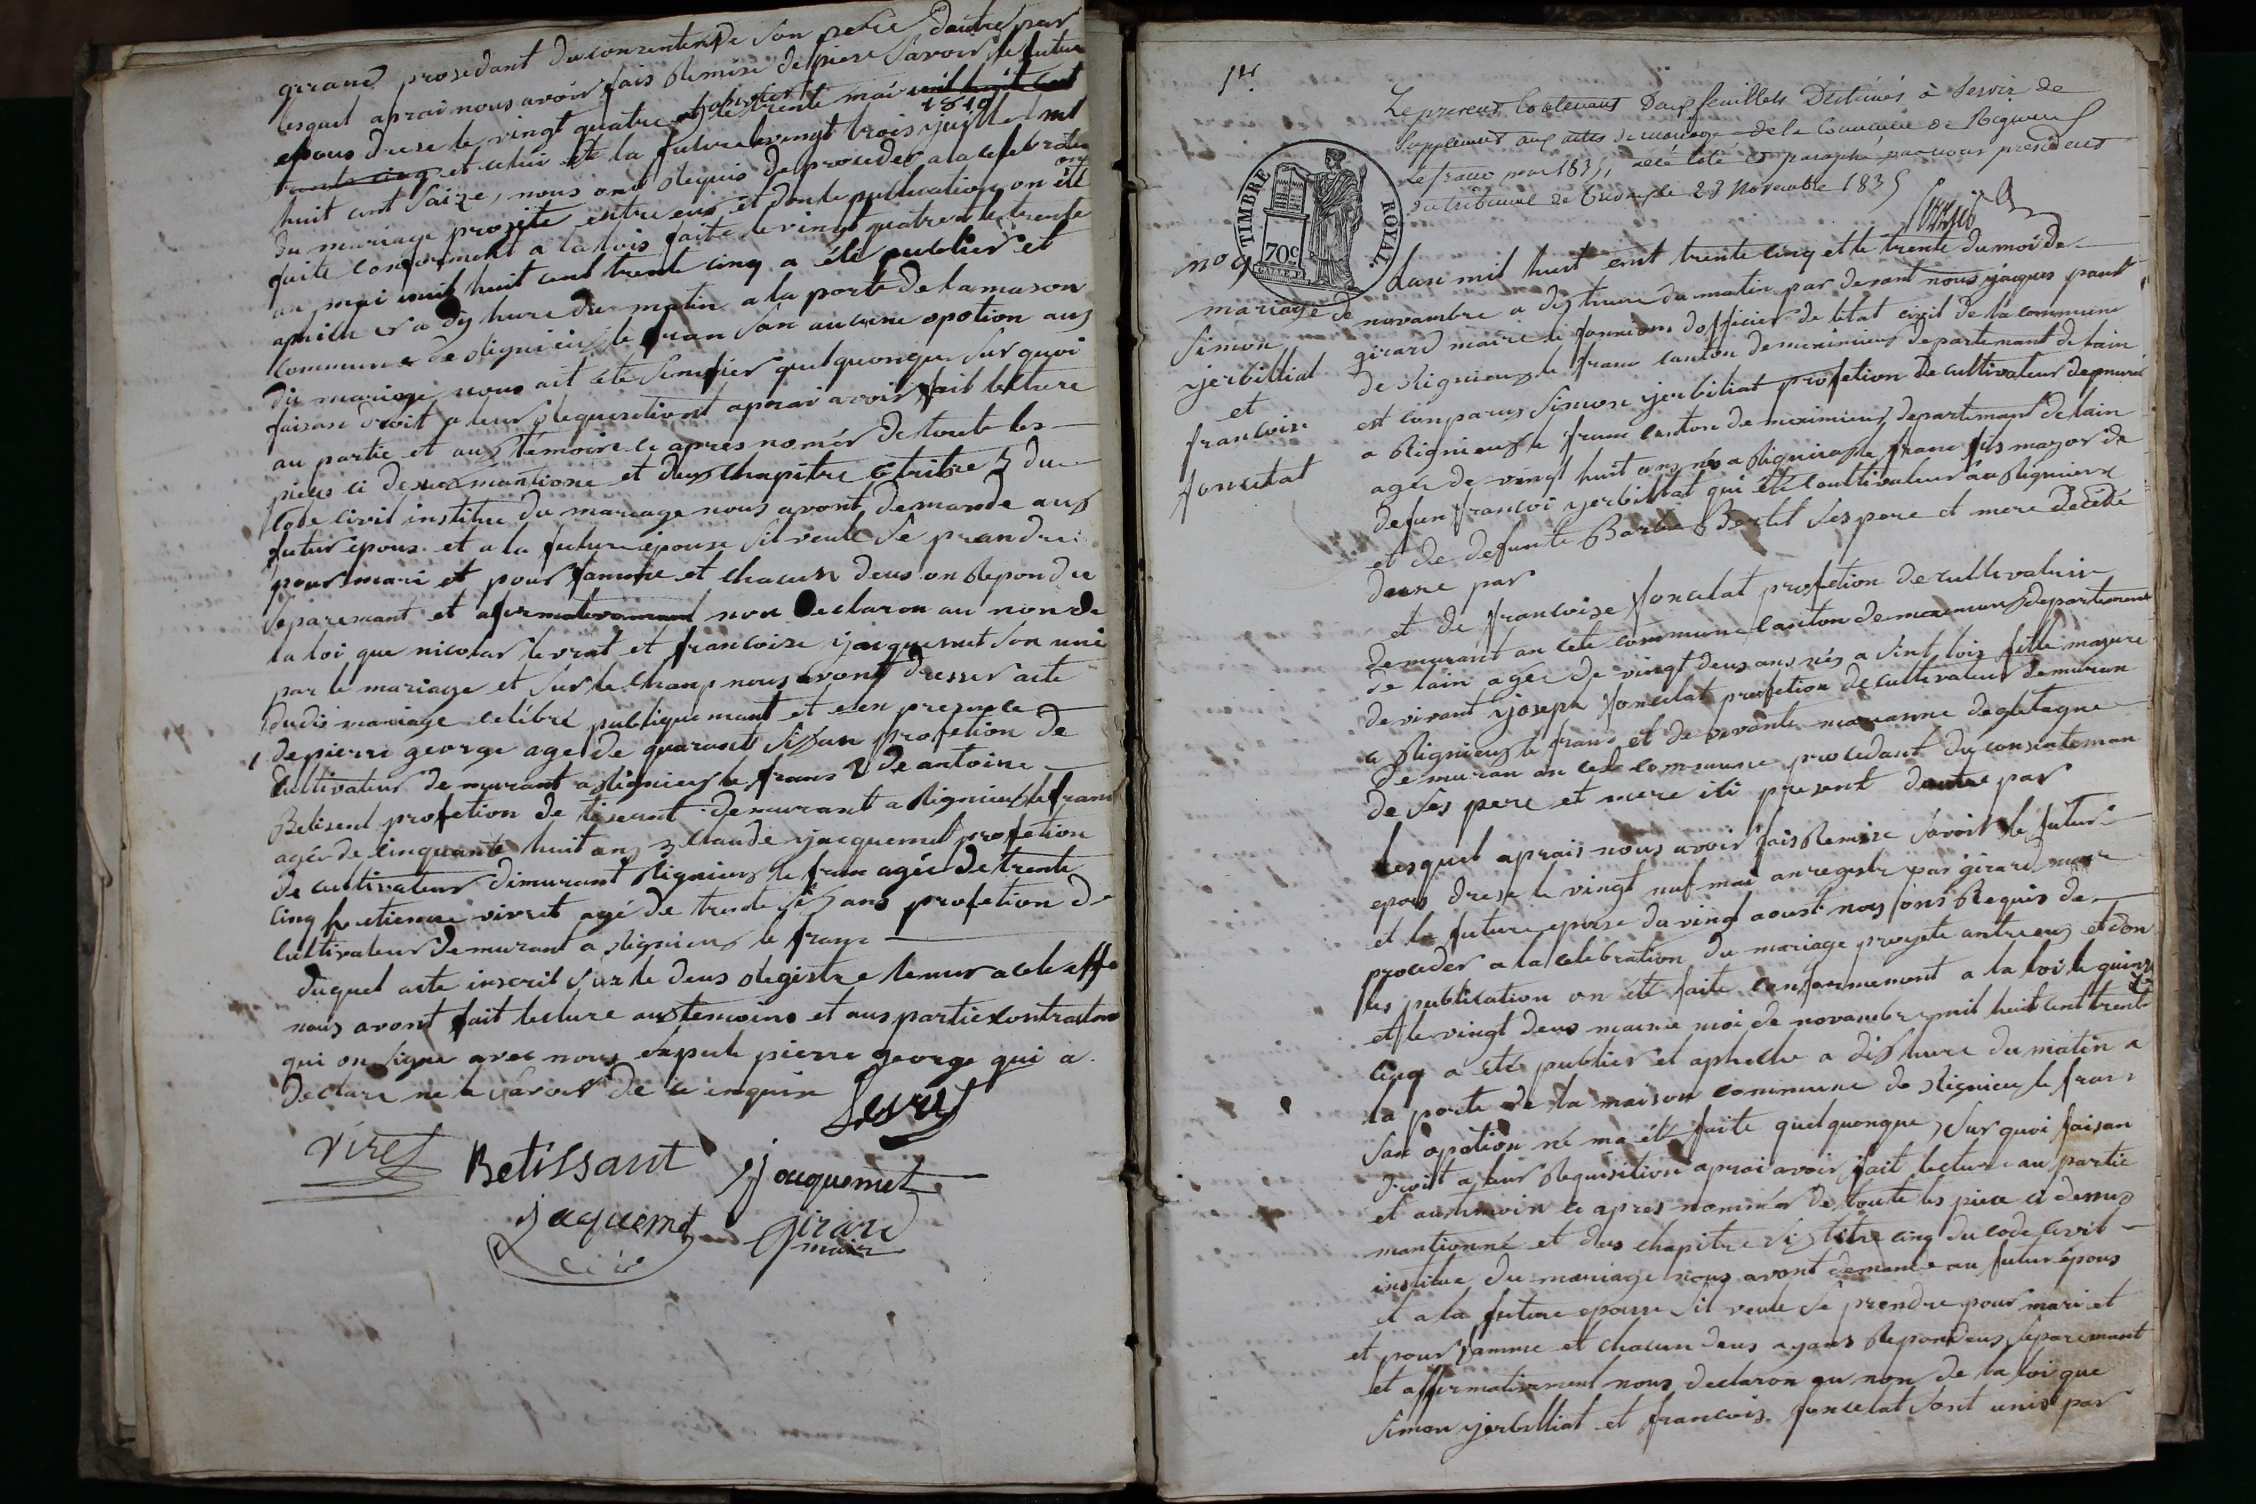 girand prosedant du consentent de son père d'autre par
lesquel aprai nous avoir fais Remise de piese savoir le futur
epous drese le vingt quatre et le trente mai mil huit cent
1810
trente cinq et celui de la future le vingt trois juillet mil
huit cent saize, nous ont Requis de proceder a la celebration
du mariage projité entre eux et dont le publication on été
faite conforment a la lois faite le vingt quatre et le trente
au mai mil huit cent trente cinq a été publier et
aficher a dis hure du matin a la porte de la maison
Commune de Rignieux le fran san aucune opotion aus
dis mariage nous ait été sinifier quelquonque sur quoi
faisan droit a leur Requisitiont aprai avoir fait lecture
au partie et aus témoire ci apres nomér de toute les
pièces ci desus mantione et deus chapitre 6 tritre 5 du
Code civil institue du mariage nous avont demande aus
futur epous et a la future épouse s'il veule se prandre
pour mari et pour famme et chacun deus on Repondu
séparemant et afirmativemant nou declaron au non de
la loi que nicolas levrat et francoise jacquemet son uni
par le mariage et sur le champ nous avont dresser acte
dudis mariage celébré publiquemant et en presence
1 de pierre george age de quarante sis an profetion de
Cultivateur demurant a Rignieux le frans 2 de antoine
Betisent profetion de tiserant demurant a Rignieux le franc
agée de cinquante huit ans 3 claude jacquemet profetion
de cultivateur dimurant Rignieux le fran agée de trente
cinq 4 etienne virret agé de trente sis ans profetion de
Cultivateur demurant a Rignieux le franc
duquel acte inscrit sur le deus Registre tenur a cete effe
nous avont fait lecture aus temoins et aus partie contratans
qui on signe avec nous exepute pierre george qui a
declare ne le savoir de ce enquire
Levret
Viret Betissant Jacquemet
Jaquemet girard
maire
1er
Le present Contenant Deux feuillets Destinés à Servir de
Supplement aux actes de mariage de la Commune de Rigneux
Le franc pour 1835, a été coté et paraphé par nous président
du tribunal de Trevoux le 28 Novembre 1835
TIMBRE ROYAL.
70c
no 9
mariage de
Simon
yerbilliat
et
francoise
foncelat
Lan mil huit cent trente cinq et le trente du moi de
novambre a dis hure du matin par devant nous jaques paul
girard maire le fonncions dofficier de létat civil de la commune
de Rignieux le franc canton de meximieux departemant de lain
est comparus simon yerbilliat profetion de cultivateur demurant
a Rignieux le franc canton de meximieux departemant de lain
agée de vingt huit ans nés a Rignieux le franc fis mazor de
defun francoi yerbilliat qui été Coultivateur au Rignieux
et de defunte Barbe Bertet ses pere et mere décédé
dune par
et de francoise foncelat profetion de cultivatrise
demurant an cete commune canton de meximieux departemant
de lain agée de vingt deus ans nés a sint lois fille mazure
de vivant joseph foncelat profetion de cultivateur demuran
a Rignieux le franc et de vivante marianne degletagne
demuran an cete commune procedant du consenteman
de ses pere et mere ici present dautre par
lesquel aprais nous avoir fais Remise savoir le futur
epous drese le vingt nuf mai anregistr par girard maire
et la future epouse du vingt aoust nous sons Requis de
proceder a la celebration du mariage projete antre eus et don
les publication on été faite conformemant a la loi le quinze
et le vingt deus maime moi de novambre mil huit cent trente
cinq a été publier et aphiche a dis hure du matin a
la porte de la maison commune de Rignieux le franc
san opotion né ma été faite quelquonque, sur quoi faisan
droit a leur Requisition aprai avoir fait lecture au partie
et au temoin ci apres nommér de toute les piece ci desus
mantionné et dus chapitre sis titre cinq du code civil
institue du mariage nous avont demande au futur épous
et a la future epouse sil veule se prendre pour mari et
et pour famme et chacun deus ayans Repondeus separemant
et affirmativement nous declaron au non de la loi que
simon yerbilliat et francois foncelat sont unis par